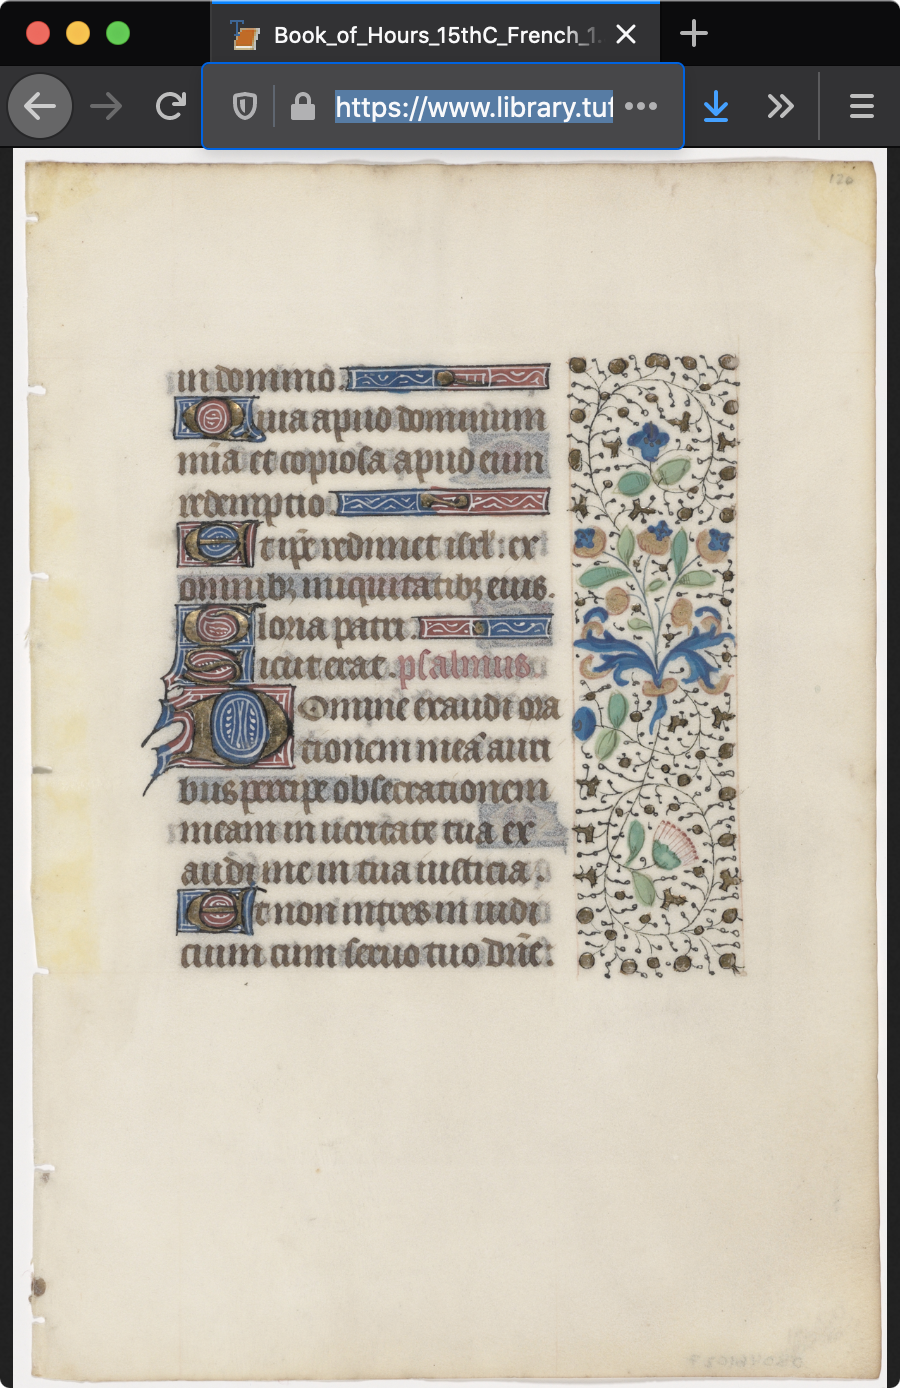 Book_of_Hours_15thC_French_1.
https://www.library.tuf
120
in domino.
Quia apud dominum
mĩa et copiosa apud eum
redemptio.
Et ip̃e redimet isrl̃: ex
omnibꝫ iniquitatibꝫ eius.
Gloria patri.
Sicut erat. psalmus.
Domine exaudi ora
tionem meã auri
bus percipe obsecrationem
meam in ueritate tua ex
audi me in tua iusticia.
Et non intres in iudi
cium cum seruo tuo dñe: